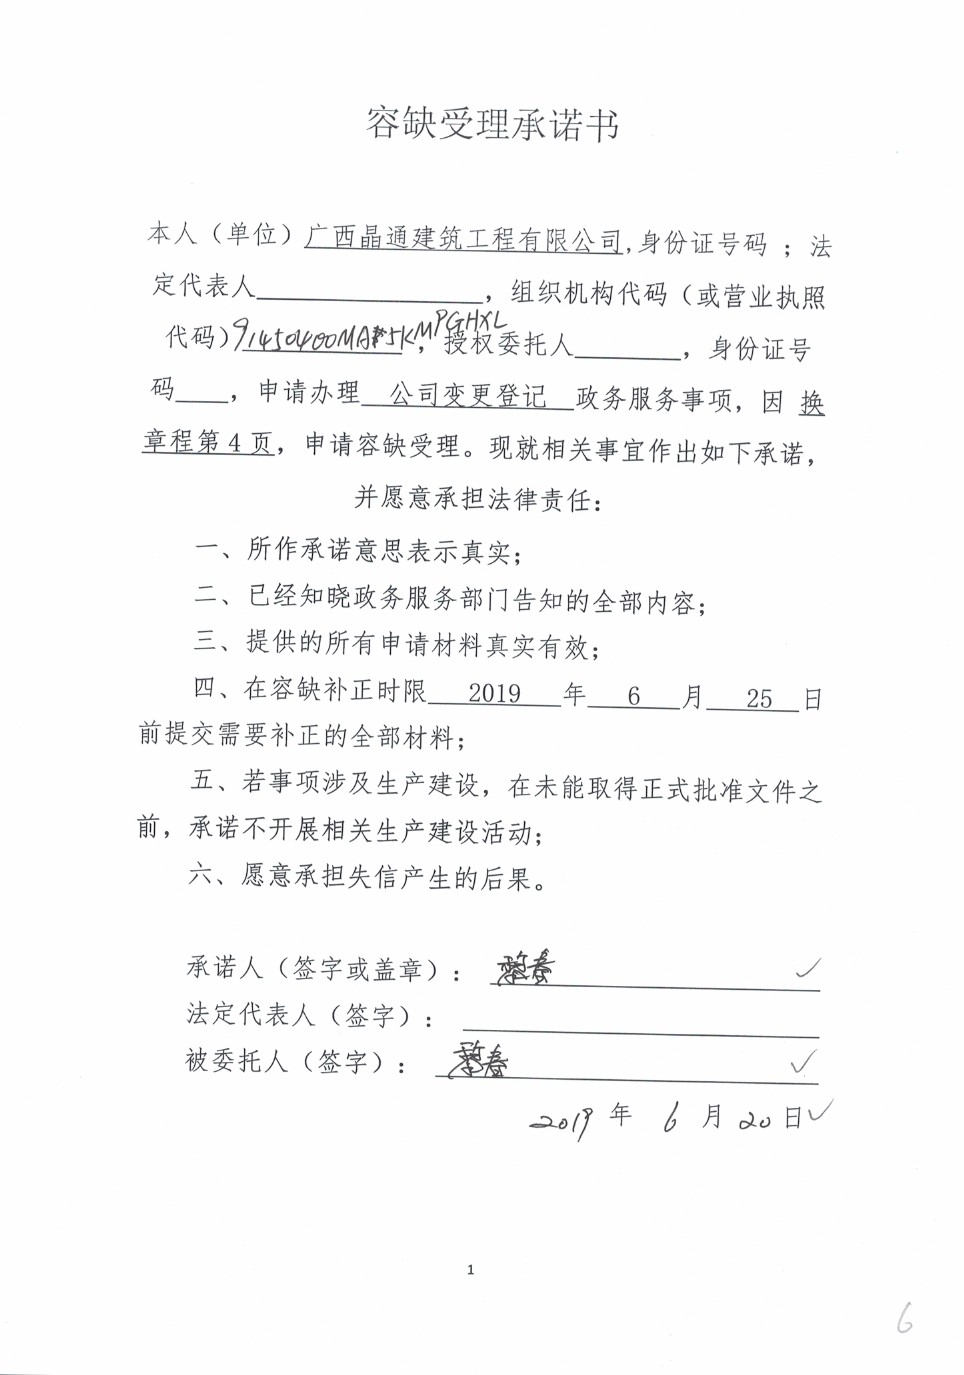 容缺受理承诺书
本人（单位）广西晶通建筑工程有限公司,身份证号码 ；法
定代表人________________，组织机构代码（或营业执照
代码）91450400MA5KMPGHXL，授权委托人________，身份证号
码____，申请办理 公司变更登记 政务服务事项，因 换
章程第 4 页，申请容缺受理。现就相关事宜作出如下承诺，
并愿意承担法律责任：
一、所作承诺意思表示真实；
二、已经知晓政务服务部门告知的全部内容；
三、提供的所有申请材料真实有效；
四、在容缺补正时限 2019 年 6 月 25 日
前提交需要补正的全部材料；
五、若事项涉及生产建设，在未能取得正式批准文件之
前，承诺不开展相关生产建设活动；
六、愿意承担失信产生的后果。
承诺人（签字或盖章）： 黎春 ✓
法定代表人（签字）：
被委托人（签字）： 黎春 ✓
2019 年 6 月 20 日 ✓
1
6